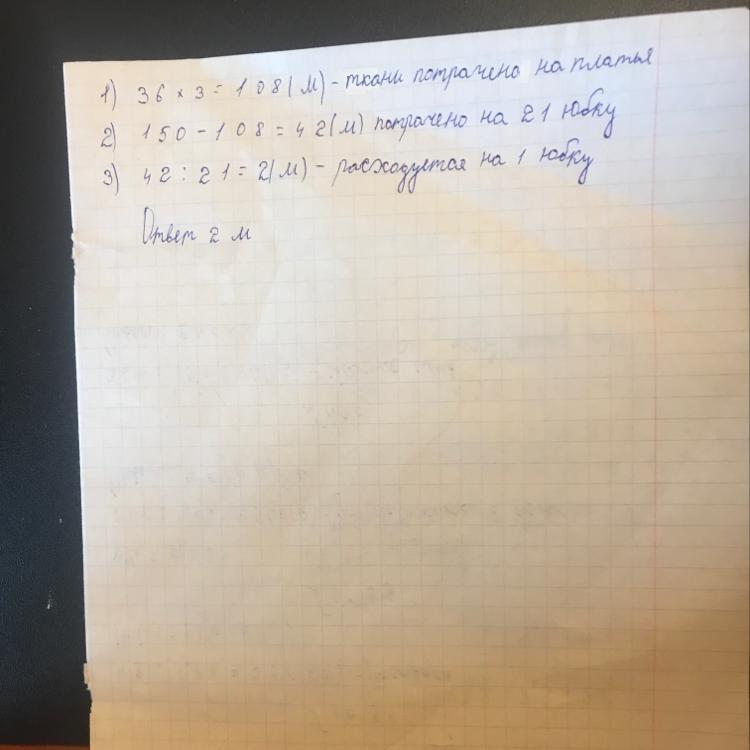 1) 36 × 3 = 108 (м) - ткани потрачено на платья
2) 150 - 108 = 42 (м) потрачено на 21 юбку
3) 42 : 21 = 2 (м) - расходуется на 1 юбку
Ответ 2 м